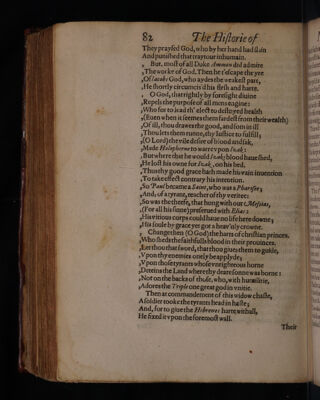 82 The Historie of
They praysed God, who by her hand had slain
And punished that traytour inhumain.
, But, most of all Duke Ammon did admire
,The worke of God. Then he t'escape the yre
,Of Iacobs God, who aydes the weakest part,
,He shortly circumcis'd his flesh and harte.
, O God, that rightly by foresight diuine
,Repels the purpose of all mens engine:
,Who for to lead th'elect to destyned health
,(Euen when it seemes them fardest from their wealth)
,Of ill, thou drawes the good, and som in ill
,Thou lets them runne, thy Iustice to fulfill;
,(O Lord) the vile desire of blood and sak,
,Made Holopherne to warre vpon Isaak:
,But where that he would Isaks blood haue shed,
,He lost his owne for Isak, on his bed.
,Thus thy good grace hath made his vain inuention
,To take effect contrary his intention.
,So Paul became a Saint, who was a Pharisee,
,And, of a tyrant, teacher of thy veritee:
,So was the theefe, that hung with our Messias,
,(For all his sinne) preserued with Elias:
,His vitious corps could haue no life here downe;
,His soule by grace yet got a heau'nly crowne.
, Change then (O God) the harts of christian princes,
,Who sheds the faithfulls blood in their prouinces.
,Let thou that sword, that thou giues them to guide,
,Vpon thy enemies onely be applyde;
,Vpon those tyrants whose vnrighteous horne
,Deteins the Land where thy deare sonne was borne:
,Not on the backs of those, who, with humilitie,
,Adores the Triple one great god in vnitie.
Then at commandement of this widow chaste,
A soldier tooke the tyrants head in haste;
And, for to giue the Hebrewes harte withall,
He fixed it vpon the foremost wall.
Their